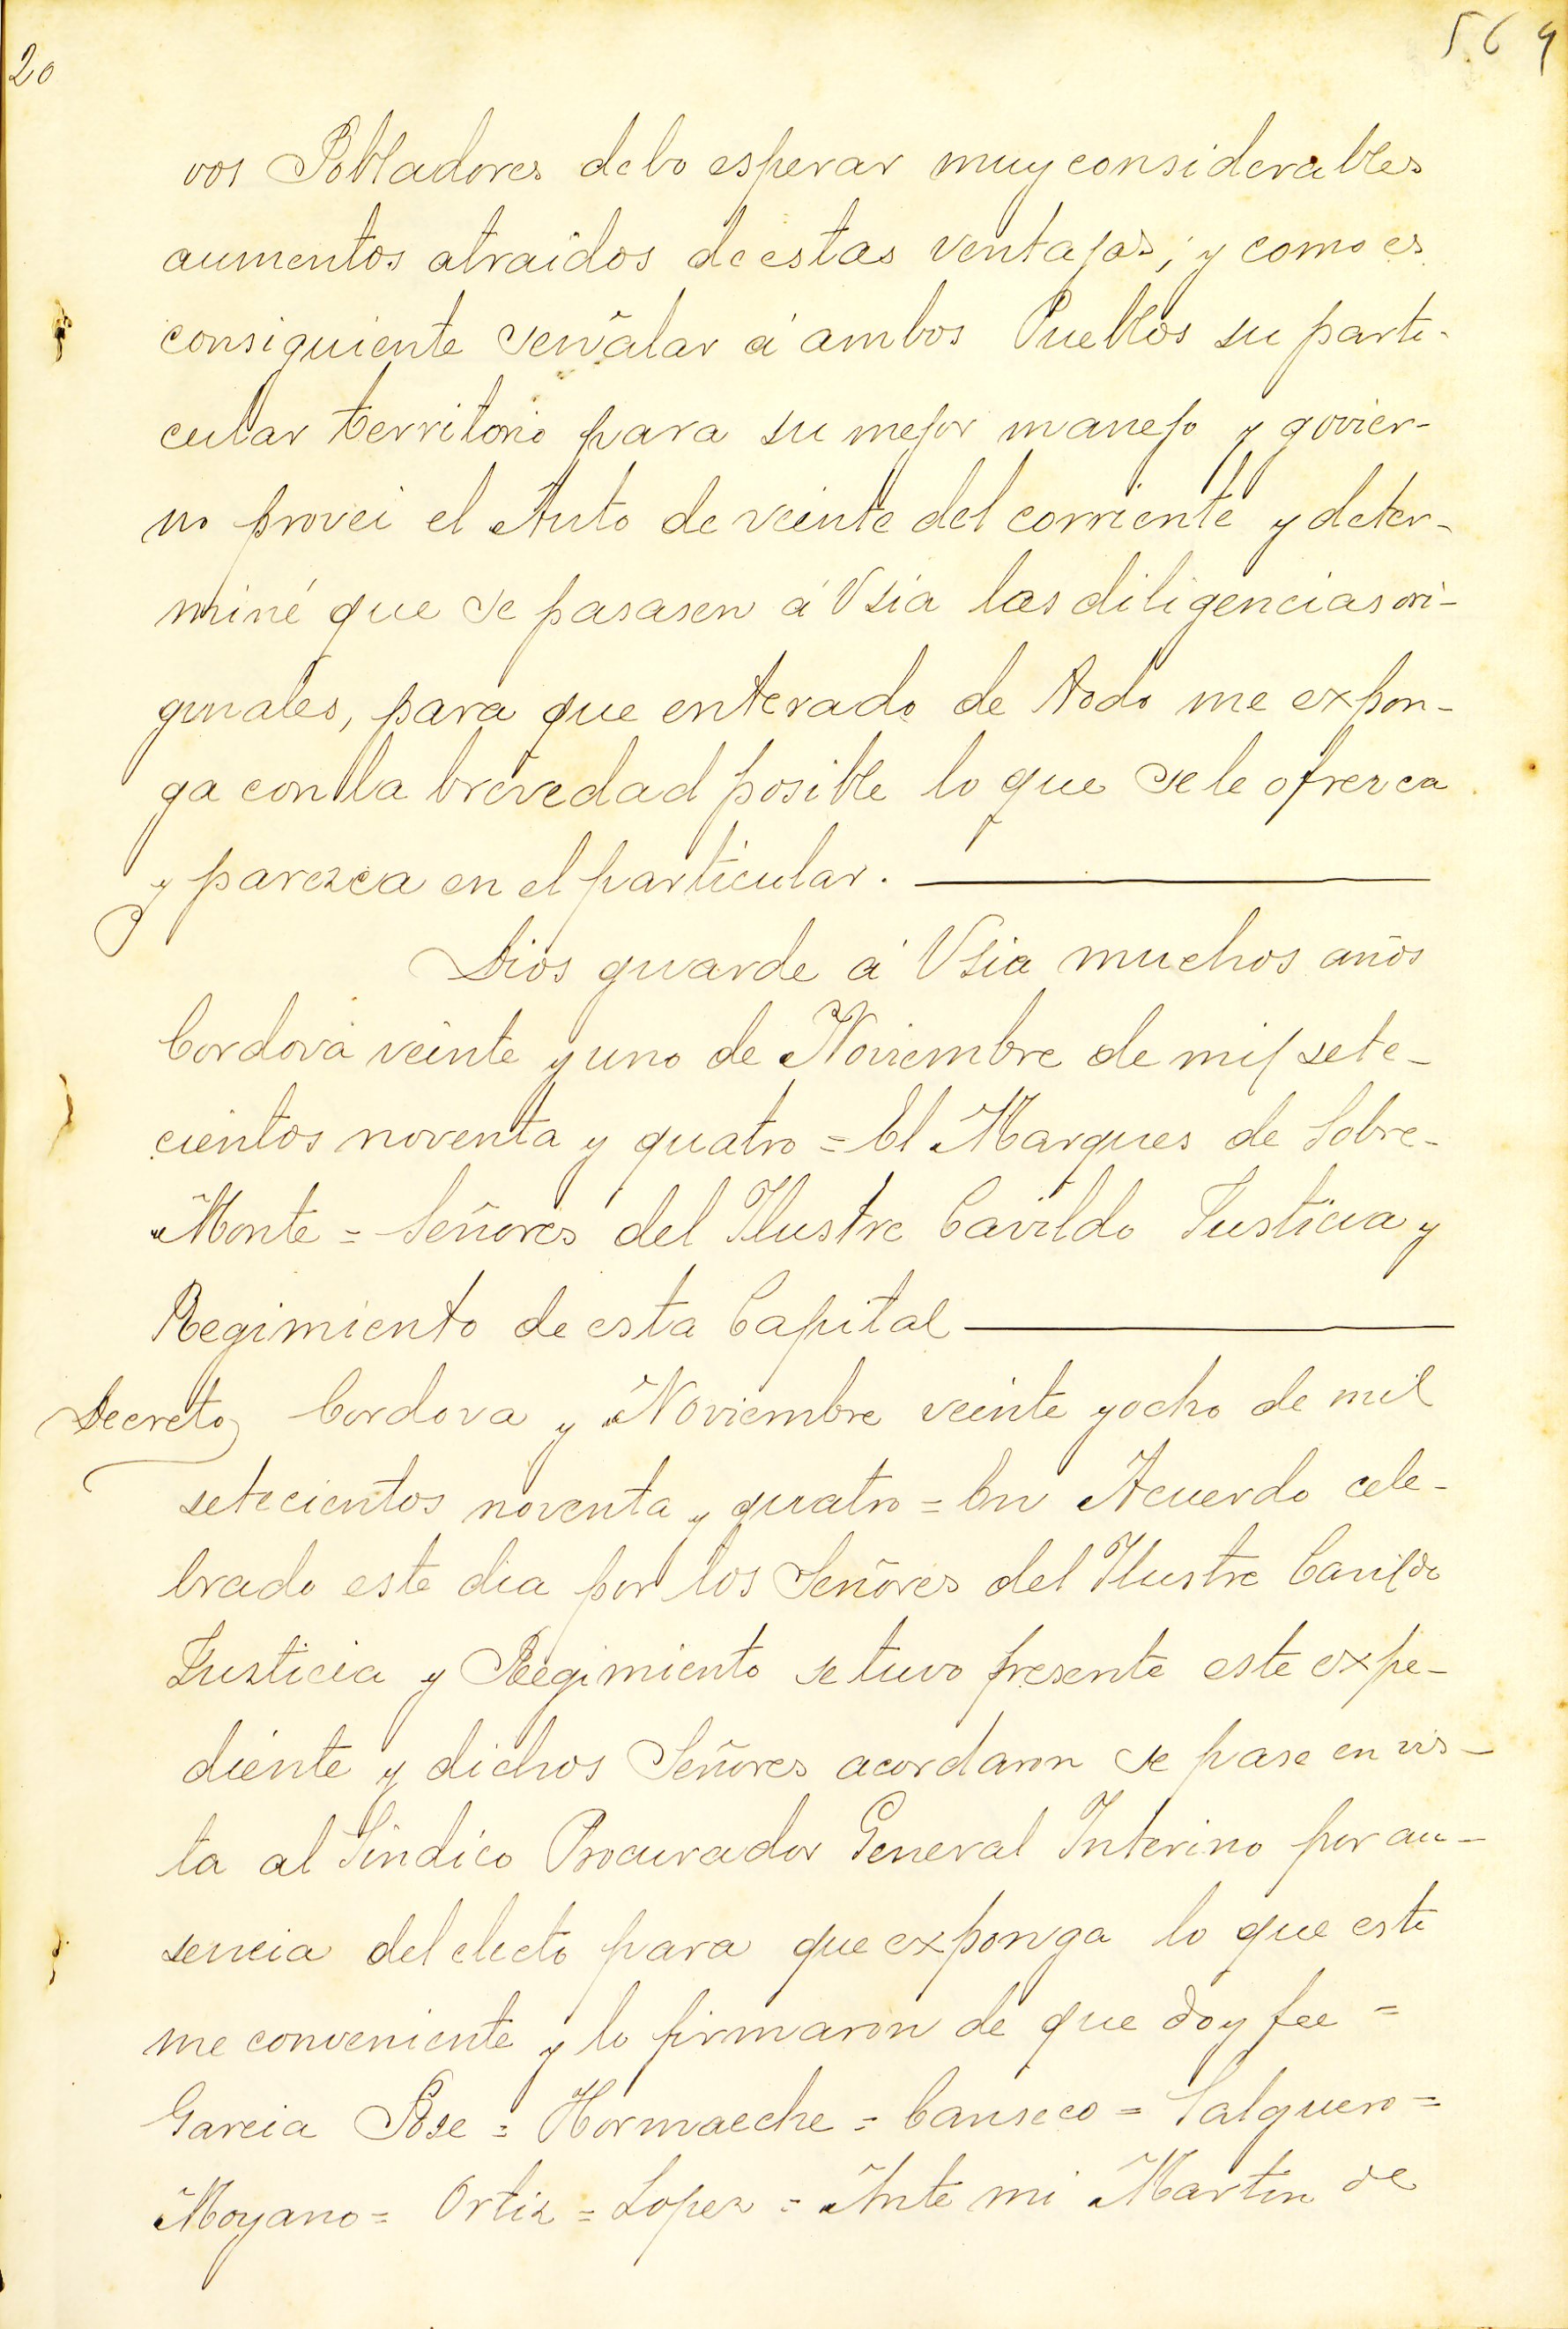 20
569
vos Pobladores debo esperar muy considerables
aumentos atraidos de estas ventajas; y como es
consiguiente señalar á ambos Pueblos su parti-
cular territorio para su mejor manejo y govier-
no provei el Auto de veinte del corriente y deter-
miné que se pasasen á Vsia las diligencias ori-
ginales, para que enterado de todo me expon-
ga con la brevedad posible lo que se le ofrezca
y parezca en el particular.
Dios guarde á Vsia muchos años
Cordova veinte y uno de Noviembre de mil sete-
cientos noventa y quatro = El Marques de Sobre-
Monte = Señores del Ilustre Cavildo Justicia y
Regimiento de esta Capital
Decreto Cordova y Noviembre veinte y ocho de mil
setecientos noventa y quatro = En Acuerdo cele-
brado este dia por los Señores del Ilustre Cavildo
Justicia y Regimiento se tuvo presente este expe-
diente y dichos Señores acordaron se pase en vis-
ta al Sindico Procurador General Interino por au-
sencia del electo para que exponga lo que esti
me conveniente y lo firmaron de que doy fee =
Garcia Pose = Hormaeche = Canseco = Salguero =
Moyano = Ortiz = Lopez = Ante mi Martin de